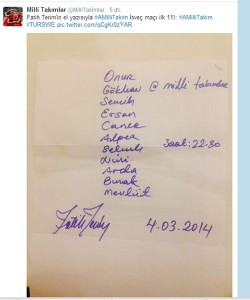 Milli Takımlar @MilliTakimlar 5 dk.
Fatih Terim'in el yazısıyla #AMilliTakim İsveç maçı ilk 11'i: #AMilliTakim
#TURSWE pic.twitter.com/qCgKr0zYAR
Onur
Gökhan @ milli takımlar
Semih
Ersan
Caner
Alper
Selçuk Saat: 22.30
Nuri
Arda
Burak
Mevlüt
Fatih Terim 4.03.2014